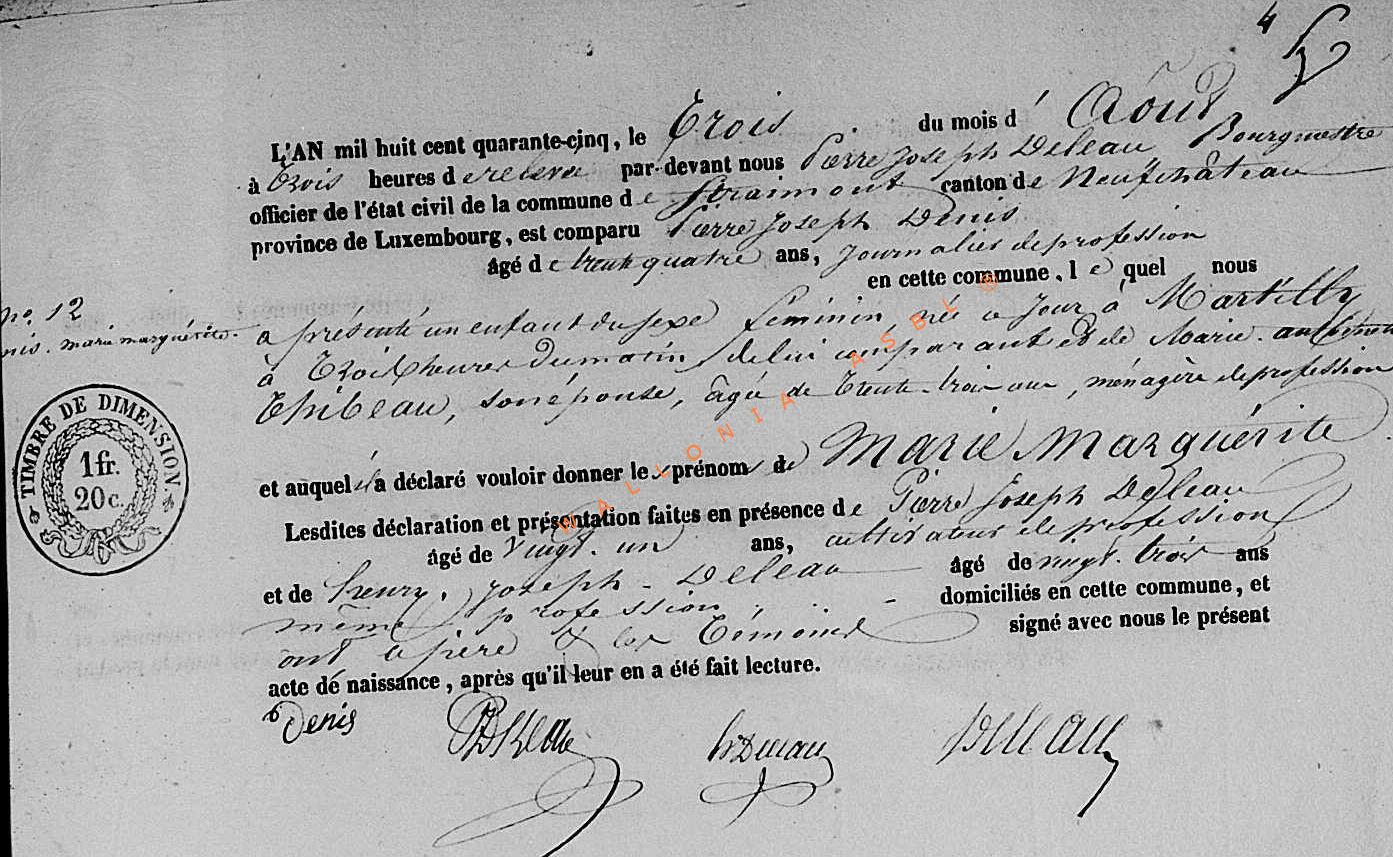 4
L'AN mil huit cent quarante-cinq, le Trois du mois d' Août
à trois heures de relevé par-devant nous Pierre Joseph Deleau Bourgmestre
officier de l'état civil de la commune de Straimont canton de Neufchâteau
province de Luxembourg, est comparu Pierre Joseph Denis
âgé de trente quatre ans, journalier de profession
en cette commune, le quel nous
no. 12
marie marguérite.
a présenté un enfant du sexe feminin, née ce jour à Martilly
à Trois heures du matin, de lui comparant et de Marie
Thibeau, son épouse, âgée de trente-trois ans, ménagère de profession
et auquel il a déclaré vouloir donner les prénoms de Marie Marguérite
Lesdites déclaration et présentation faites en présence de Pierre Joseph Deleau
âgé de vingt-un ans, cultivateur de profession
et de henry. joseph - Deleau âgé de vingt-trois ans
même profession, domiciliés en cette commune, et
ont le père & les Témoins signé avec nous le présent
acte de naissance, après qu'il leur en a été fait lecture.
Denis
PDeleau
hDeleau
Deleau
TIMBRE DE DIMENSION
1 fr.
20 c.
WALLONIA ASBL ©